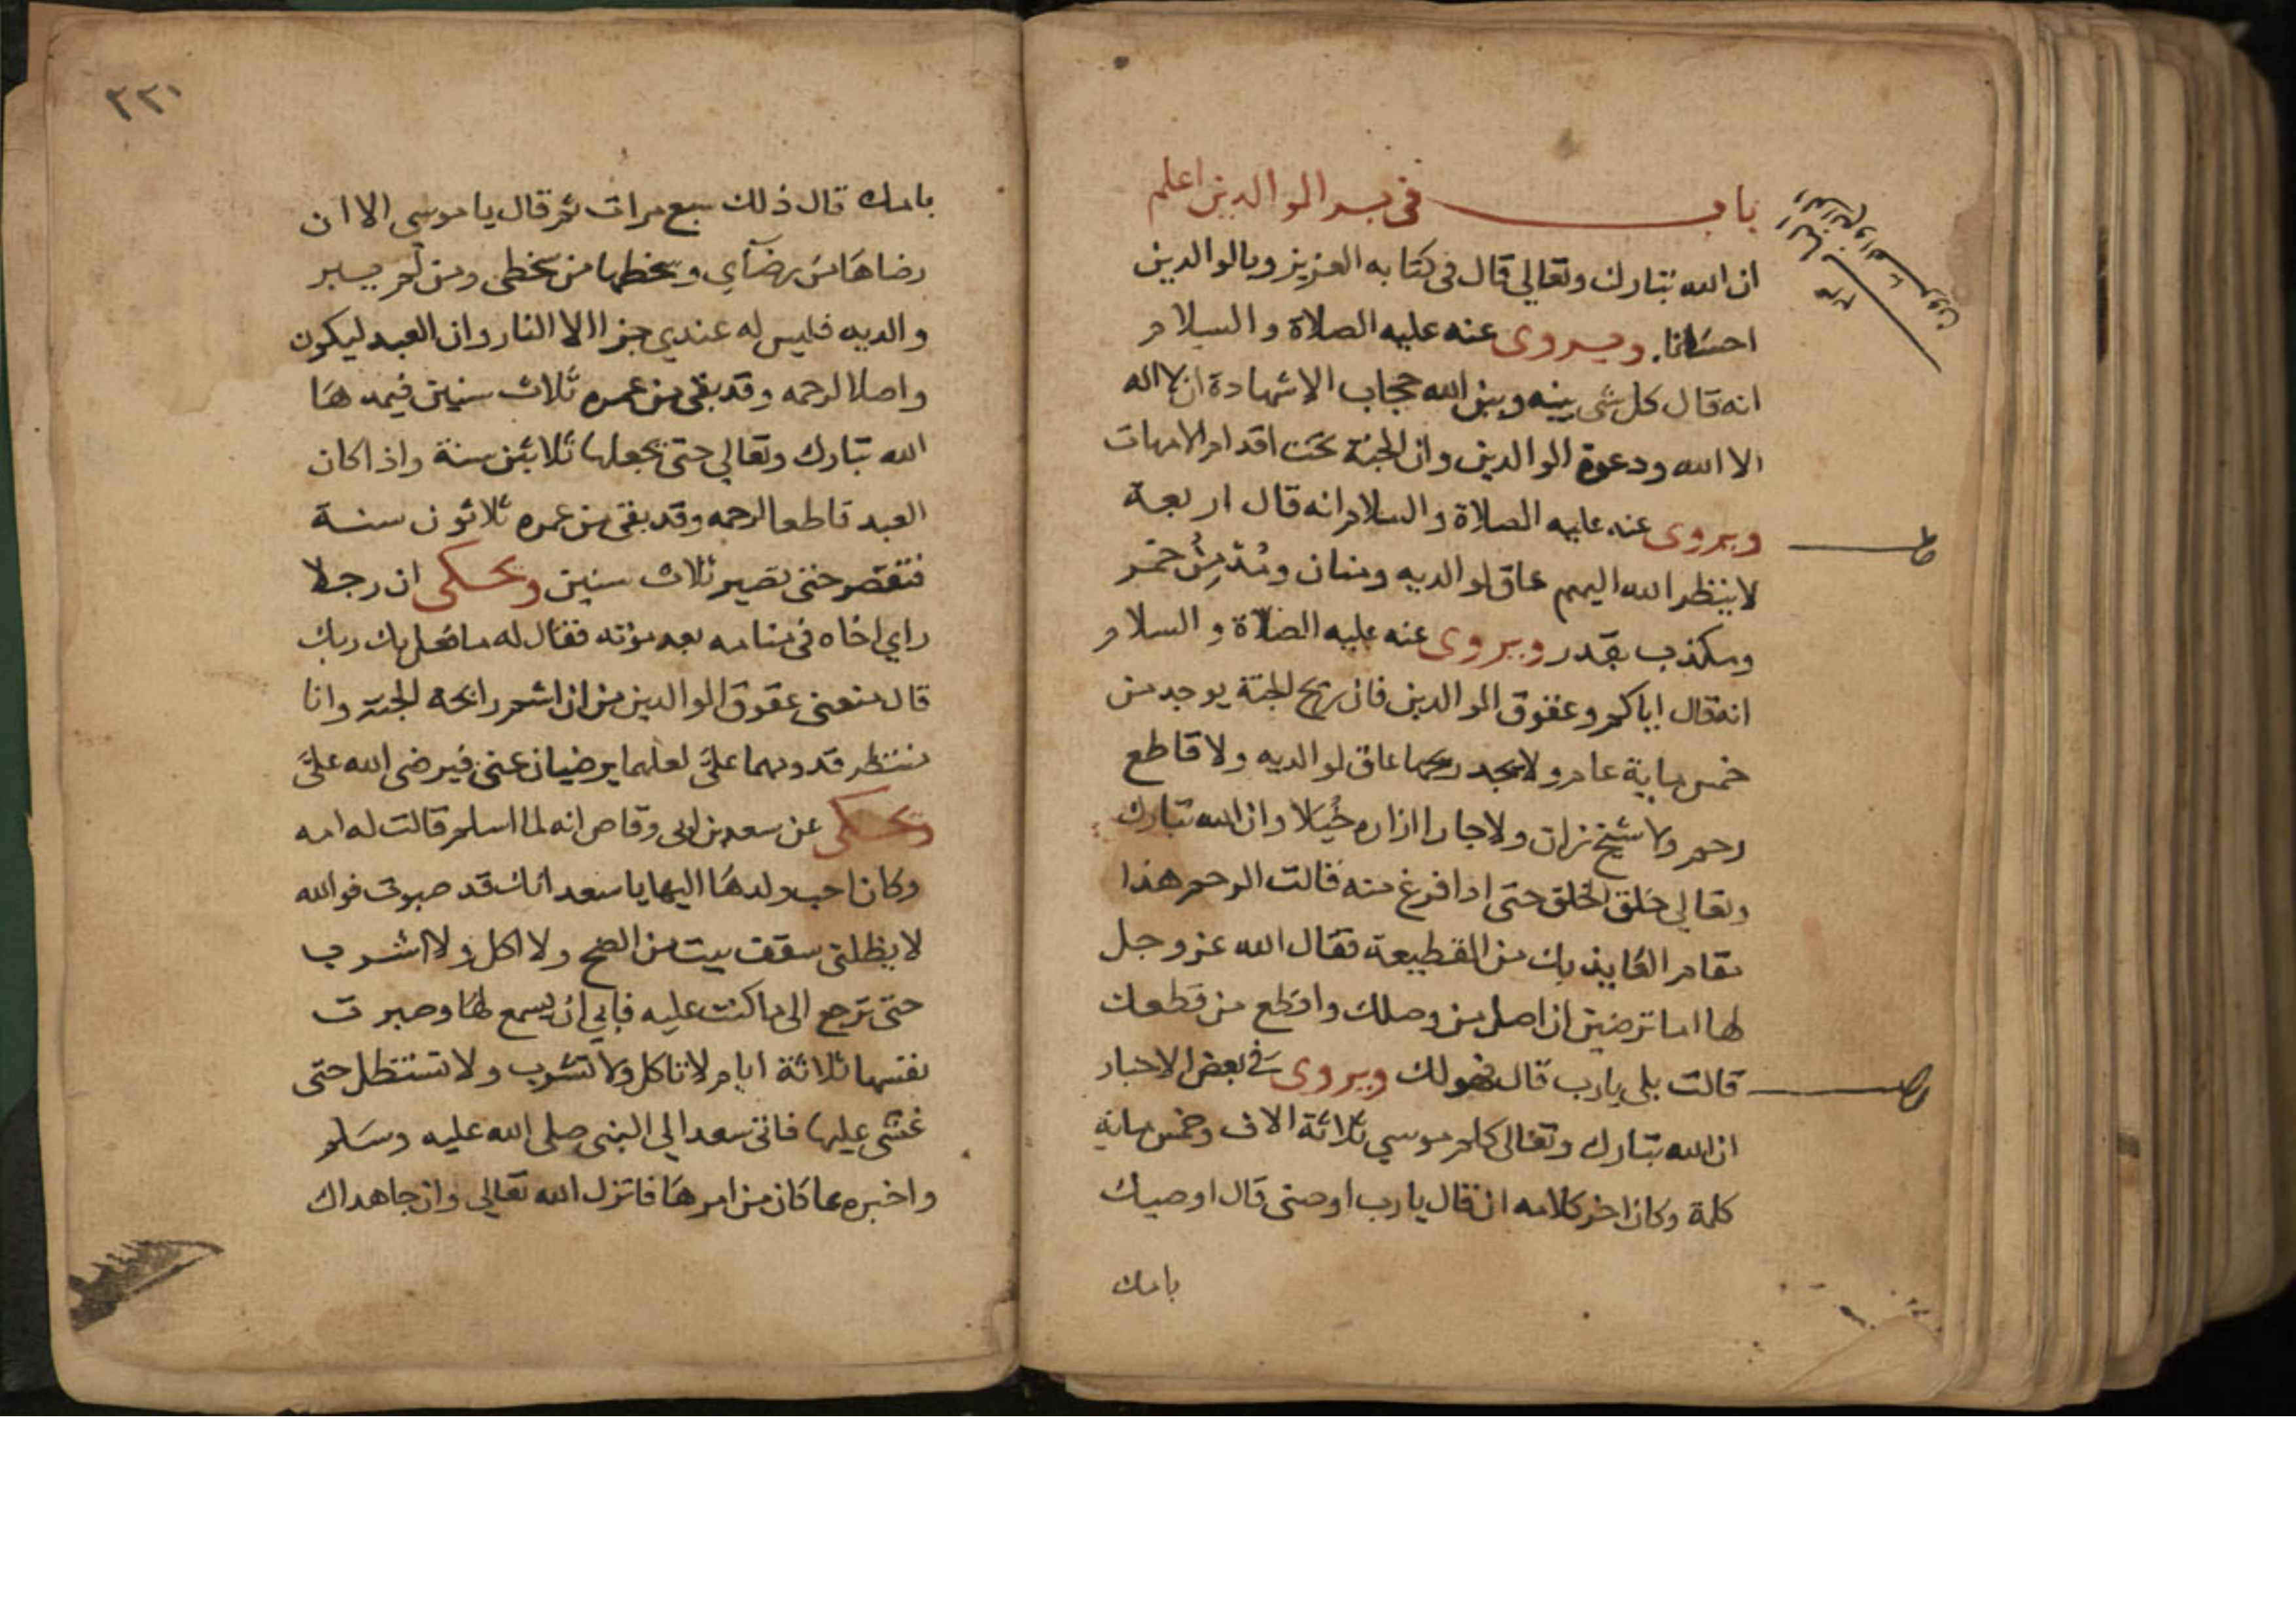 باب في بر الوالدين اعلم
ان الله تبارك وتعالي قال في كتابه العزيز وبالوالدين
احسانا. ويروى عنه عليه الصلاة والسلام
انه قال كل شى بينه وبين الله حجاب الا شهادة ان لا اله
الا الله ودعوة الوالدين وان الجنة تحت اقدام الامهات
ويروى عنه عليه الصلاة والسلام انه قال اربعة
لا ينظر الله اليهم عاق لوالديه ومنان ومدمن خمر
ومكذب بقدر ويروى عنه عليه الصلاة والسلام
انه قال اياكم وعقوق الوالدين فان ريح الجنة يوجد من
خمس ماية عام ولا يجد ريحها عاق لوالديه ولا قاطع
رحم ولا شيخ زان ولا جار ازاره خيلا وان الله تبارك
وتعالي خلق الخلق حتى اذا فرغ منه قالت الرحم هذا
مقام العايذ بك من القطيعة فقال الله عز وجل
لها اما ترضين ان اصل من وصلك واقطع من قطعك
قالت بلى يا رب قال فهو لك ويروى في بعض الاخبار
ان الله تبارك وتعالى كلم موسي ثلاثة الاف وخمس ماية
كلمة وكان اخر كلامه ان قال يا رب اوصنى قال اوصيك
بامك
٢٢١
بامك قال ذلك سبع مرات ثم قال يا موسى الا ان
رضاها من رضآي وسخطها من سخطى ومن لم يبر
والديه فليس له عندي جزا الا النار وان العبد ليكون
واصلا لرحمه وقد بقى من عمره ثلاث سنين فيمدها
الله تبارك وتعالي حتى يجعلها ثلاثين سنة واذا كان
العبد قاطعا لرحمه وقد بقى من عمره ثلاثون سنة
فتقصر حتى تصير ثلاث سنين ويحكى ان رجلا
راي اخاه في منامه بعد موته فقال له ما فعل بك ربك
قال منعنى عقوق الوالدين من ان اشم رايحة الجنة وانا
ننتظر قدومهما علىّ لعلهما يرضيان عنى فيرضى الله علىّ
ويحكى عن سعد بن ابى وقاص انه لما اسلم قالت له امه
وكان احب ولدها اليها يا سعد انك قد صبوت فوالله
لا يظلنى سقف بيت من الضح ولا اكل ولا اشرب
حتى ترجع الى ما كنت عليه فابي ان يسمع لها وصبرت
نفسها ثلاثة ايام لا تاكل ولا تشرب ولا تستظل حتى
غشى عليها فاتى سعد الي النبى صلى الله عليه وسلم
واخبره بما كان من امرها فانزل الله تعالي وان جاهداك